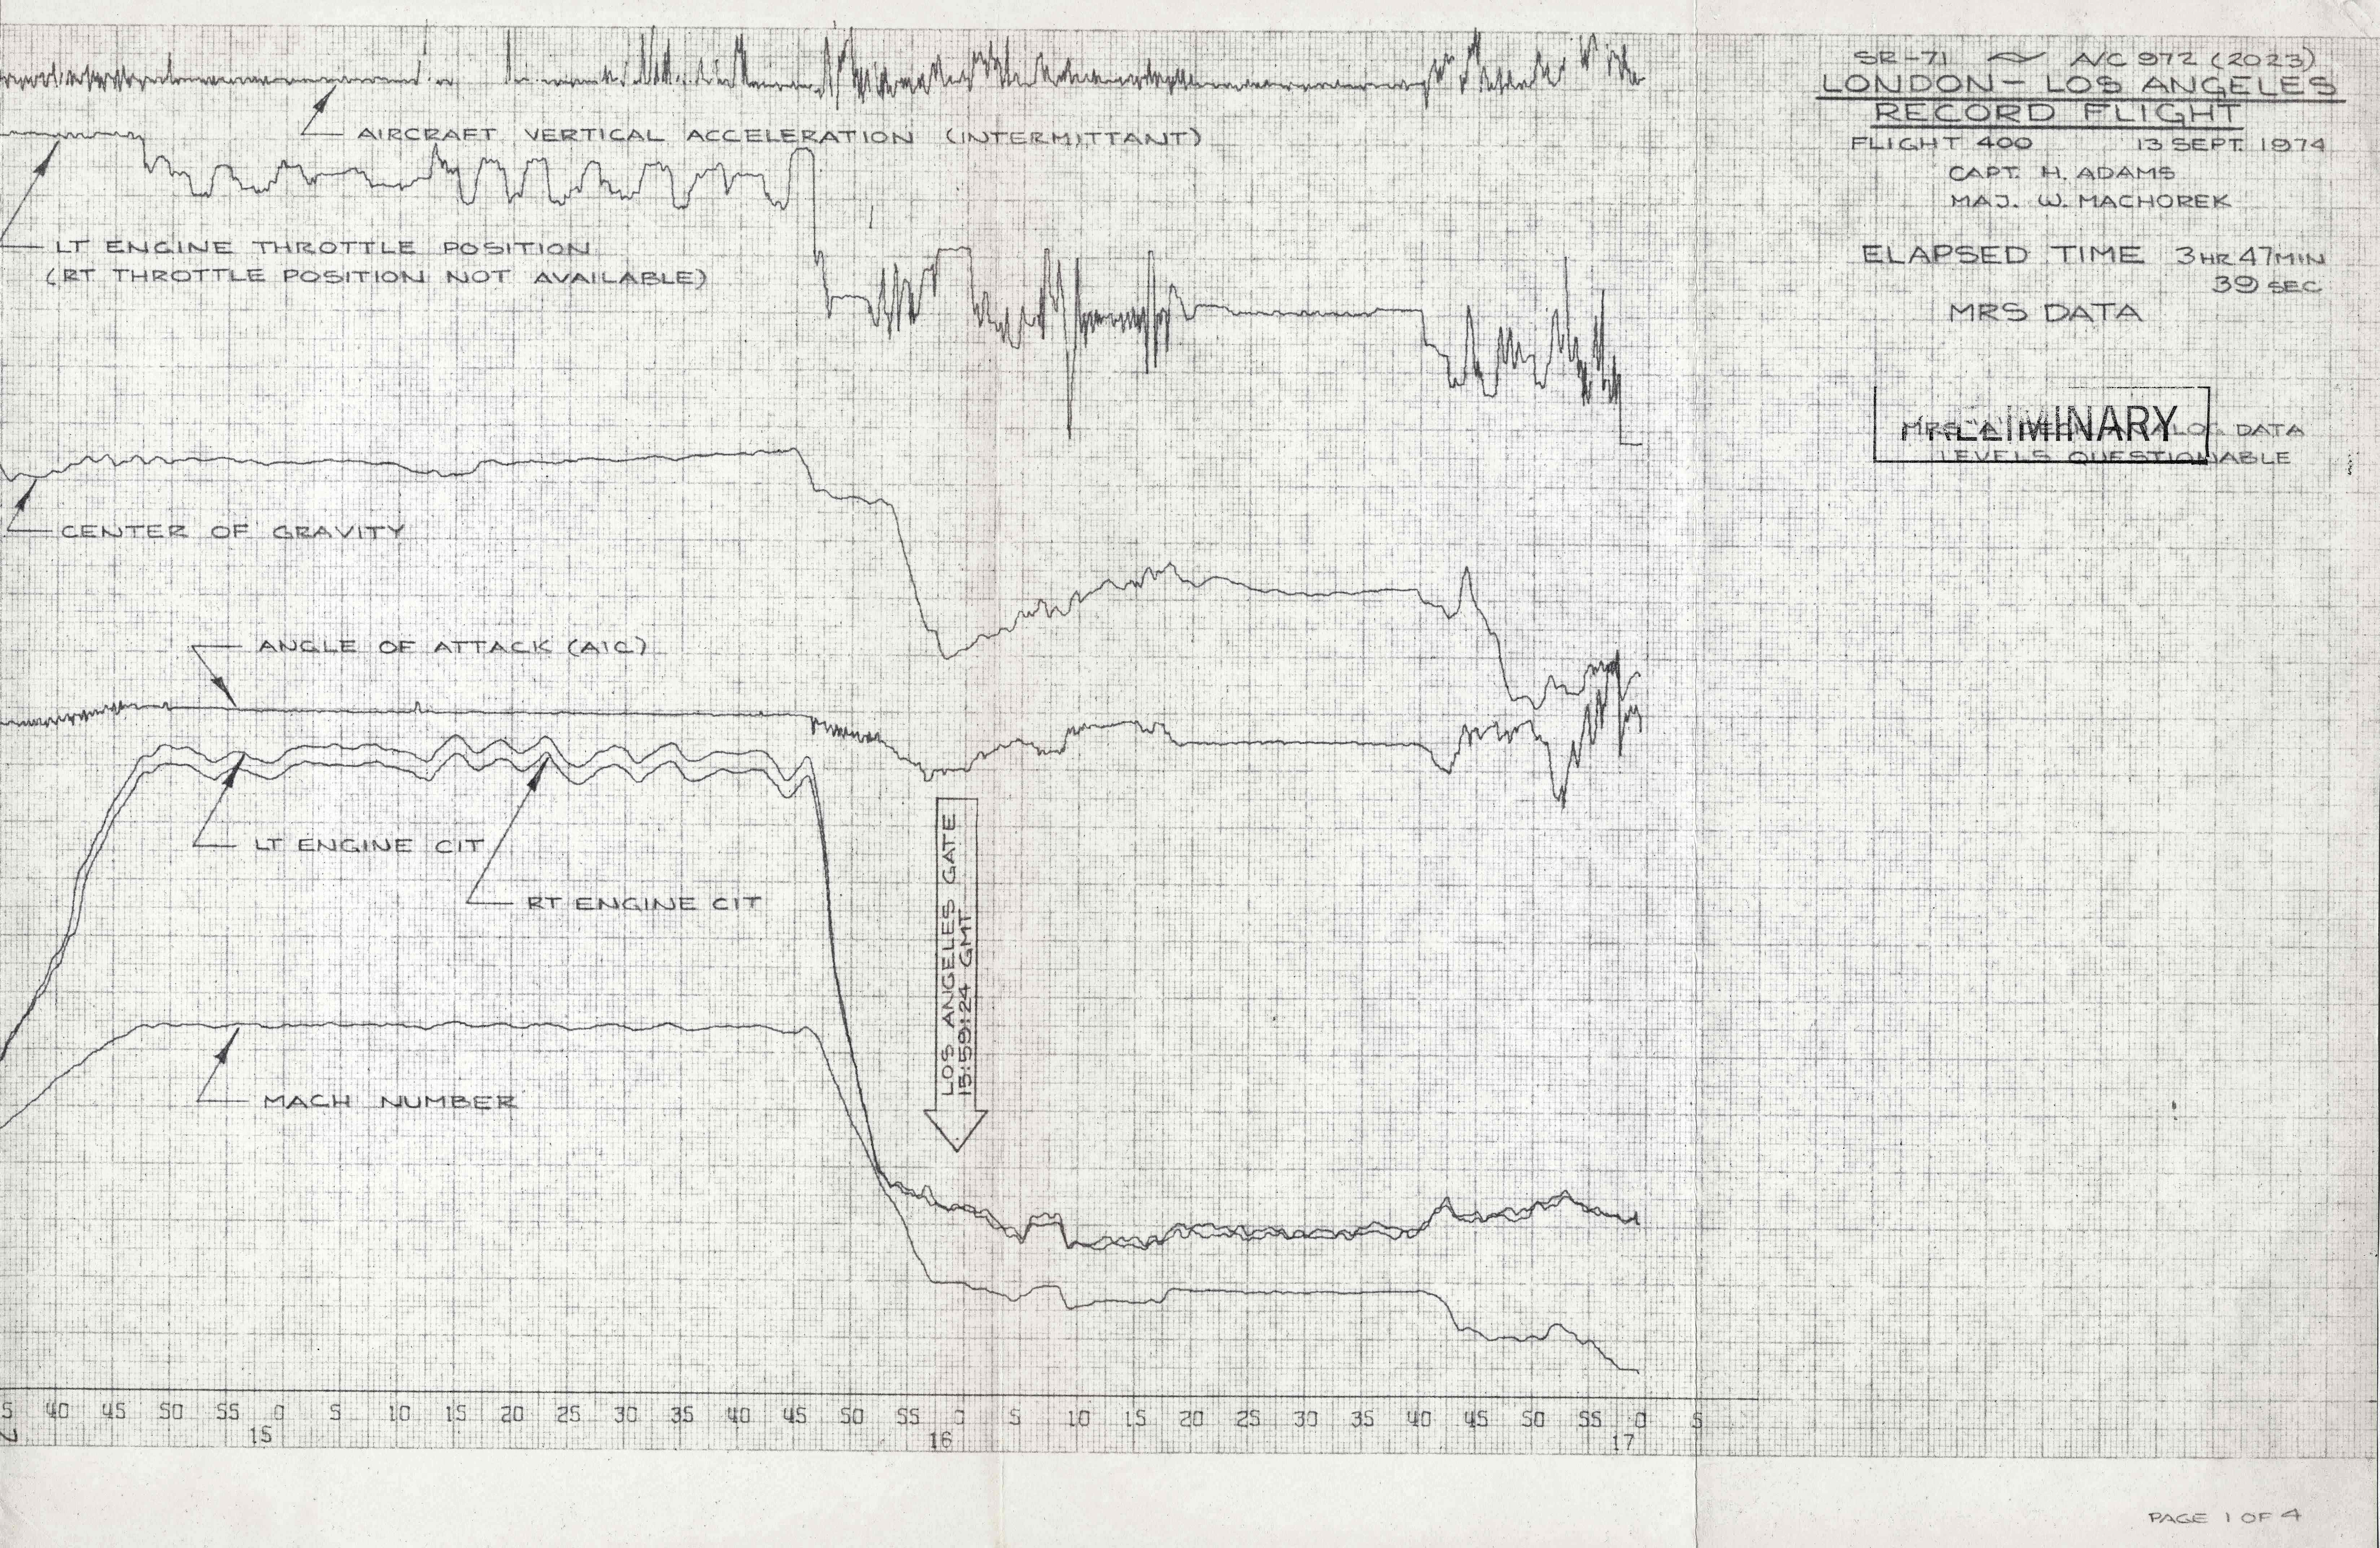 SR-71 ~ A/C 972 (2023)
LONDON - LOS ANGELES
RECORD FLIGHT
FLIGHT 400 13 SEPT. 1974
CAPT. H. ADAMS
MAJ. W. MACHOREK
ELAPSED TIME 3HR 47MIN
39 SEC
MRS DATA
PRELIMINARY
MRS "A" DATA
LEVELS QUESTIONABLE
AIRCRAFT VERTICAL ACCELERATION (INTERMITTANT)
LT ENGINE THROTTLE POSITION
(RT THROTTLE POSITION NOT AVAILABLE)
CENTER OF GRAVITY
ANGLE OF ATTACK (AIC)
LT ENGINE CIT
RT ENGINE CIT
LOS ANGELES GATE
15:59:24 GMT
MACH NUMBER
5 40 45 50 55 0 5 10 15 20 25 30 35 40 45 50 55 0 5 10 15 20 25 30 35 40 45 50 55 0 5
15 16 17
PAGE 1 OF 4